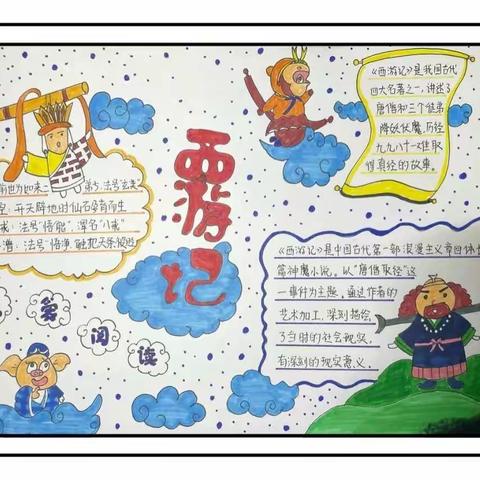 西游记
《西游记》是我国古代
四大名著之一,讲述了
唐僧和三个徒弟
降妖伏魔,历经
九九八十一难取
得真经的故事。
前世为如来
弟子,法号"玄奘"
开天辟地时仙石孕育而生
戒:法号"悟能",浑名"八戒"
法号"悟净",触犯天条
《西游记》是中国古代第一部浪漫主义章回体长
篇神魔小说,以"唐僧取经"这
一事件为主题,通过作者的
艺术加工,深刻描绘
了当时的社会现实,
有深刻的现实意义.
爱阅读